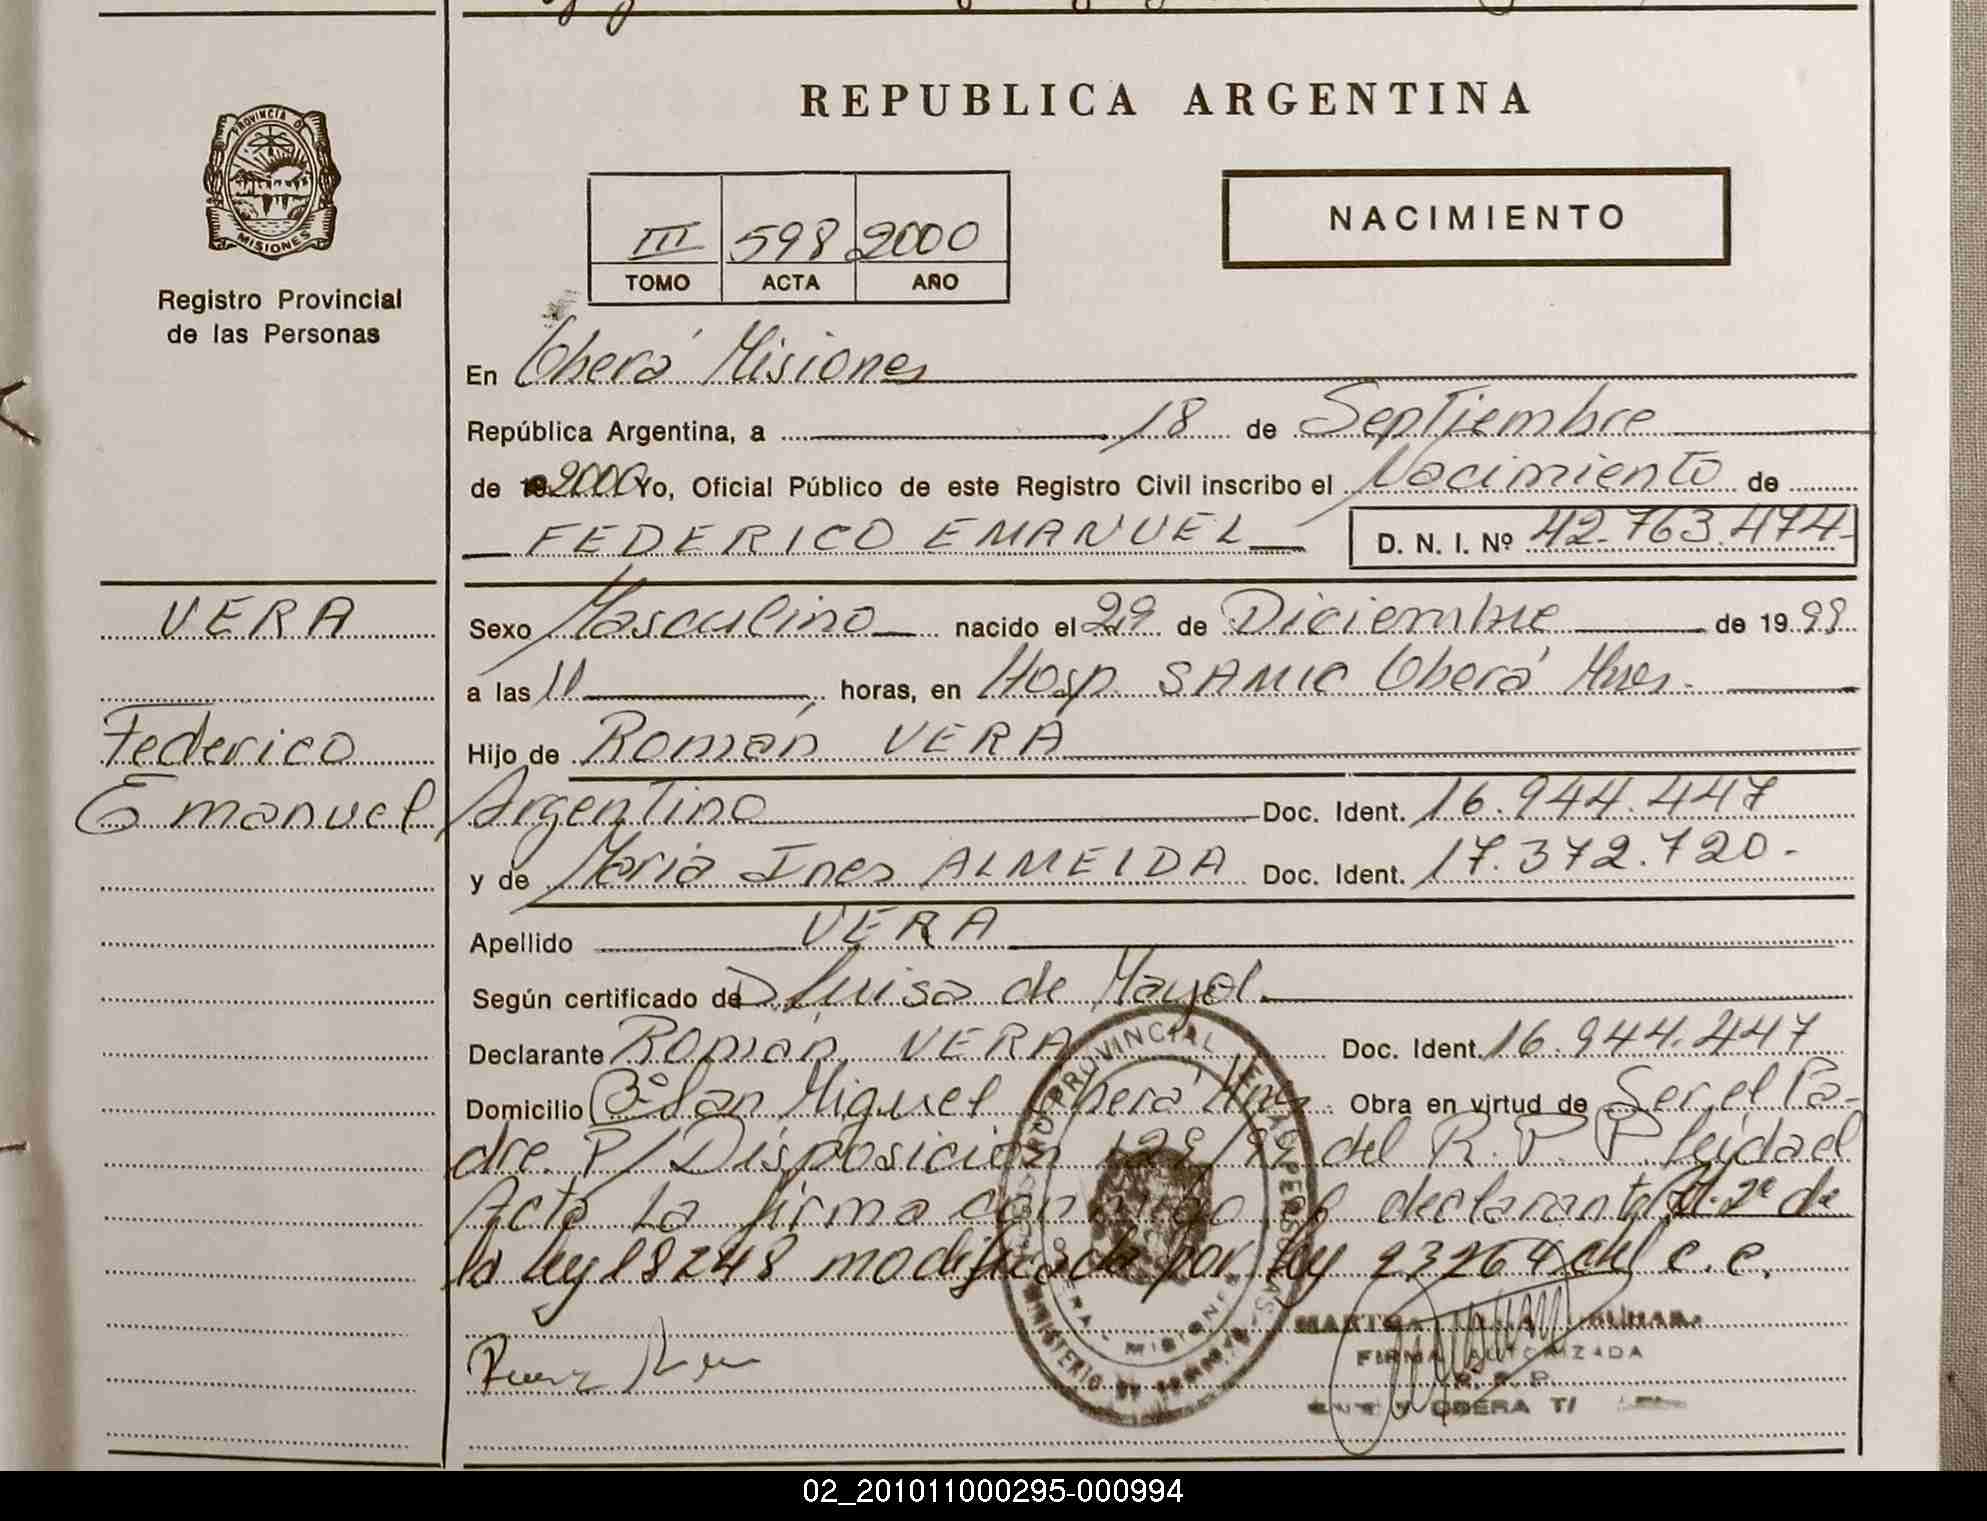 REPUBLICA ARGENTINA
PROVINCIA DE
MISIONES
Registro Provincial
de las Personas
NACIMIENTO
III 598 2000
TOMO ACTA AÑO
En Oberá Misiones
República Argentina, a 18 de Septiembre
de 2000 Yo, Oficial Público de este Registro Civil inscribo el Nacimiento de
FEDERICO EMANUEL D. N. I. Nº 42.763.474-
VERA
Federico
Emanuel
Sexo Masculino nacido el 29 de Diciembre de 1999
a las 11 horas, en Hosp. SAMIC Oberá Mnes.
Hijo de Román VERA
Argentino Doc. Ident. 16.944.447
y de Maria Ines ALMEIDA Doc. Ident. 17.372.720.-
Apellido VERA
Según certificado de D Luisa de Mayol
Declarante Román VERA Doc. Ident. 16.944.447
Domicilio Bº San Miguel Oberá Mnes Obra en virtud de Ser el Pa-
dre. P/Disposición 129/99 del R. P. P. leida el
Acta la firma conmigo el declarante Art. 2º de
la ley 18248 modificada por ley 23264 del c.c.
PROVINCIAL DE LAS PERSONAS
MINISTERIO DE GOBIERNO
OBERA MISIONES
FIRMA AUTORIZADA
R. P. P.
OBERA
02_201011000295-000994